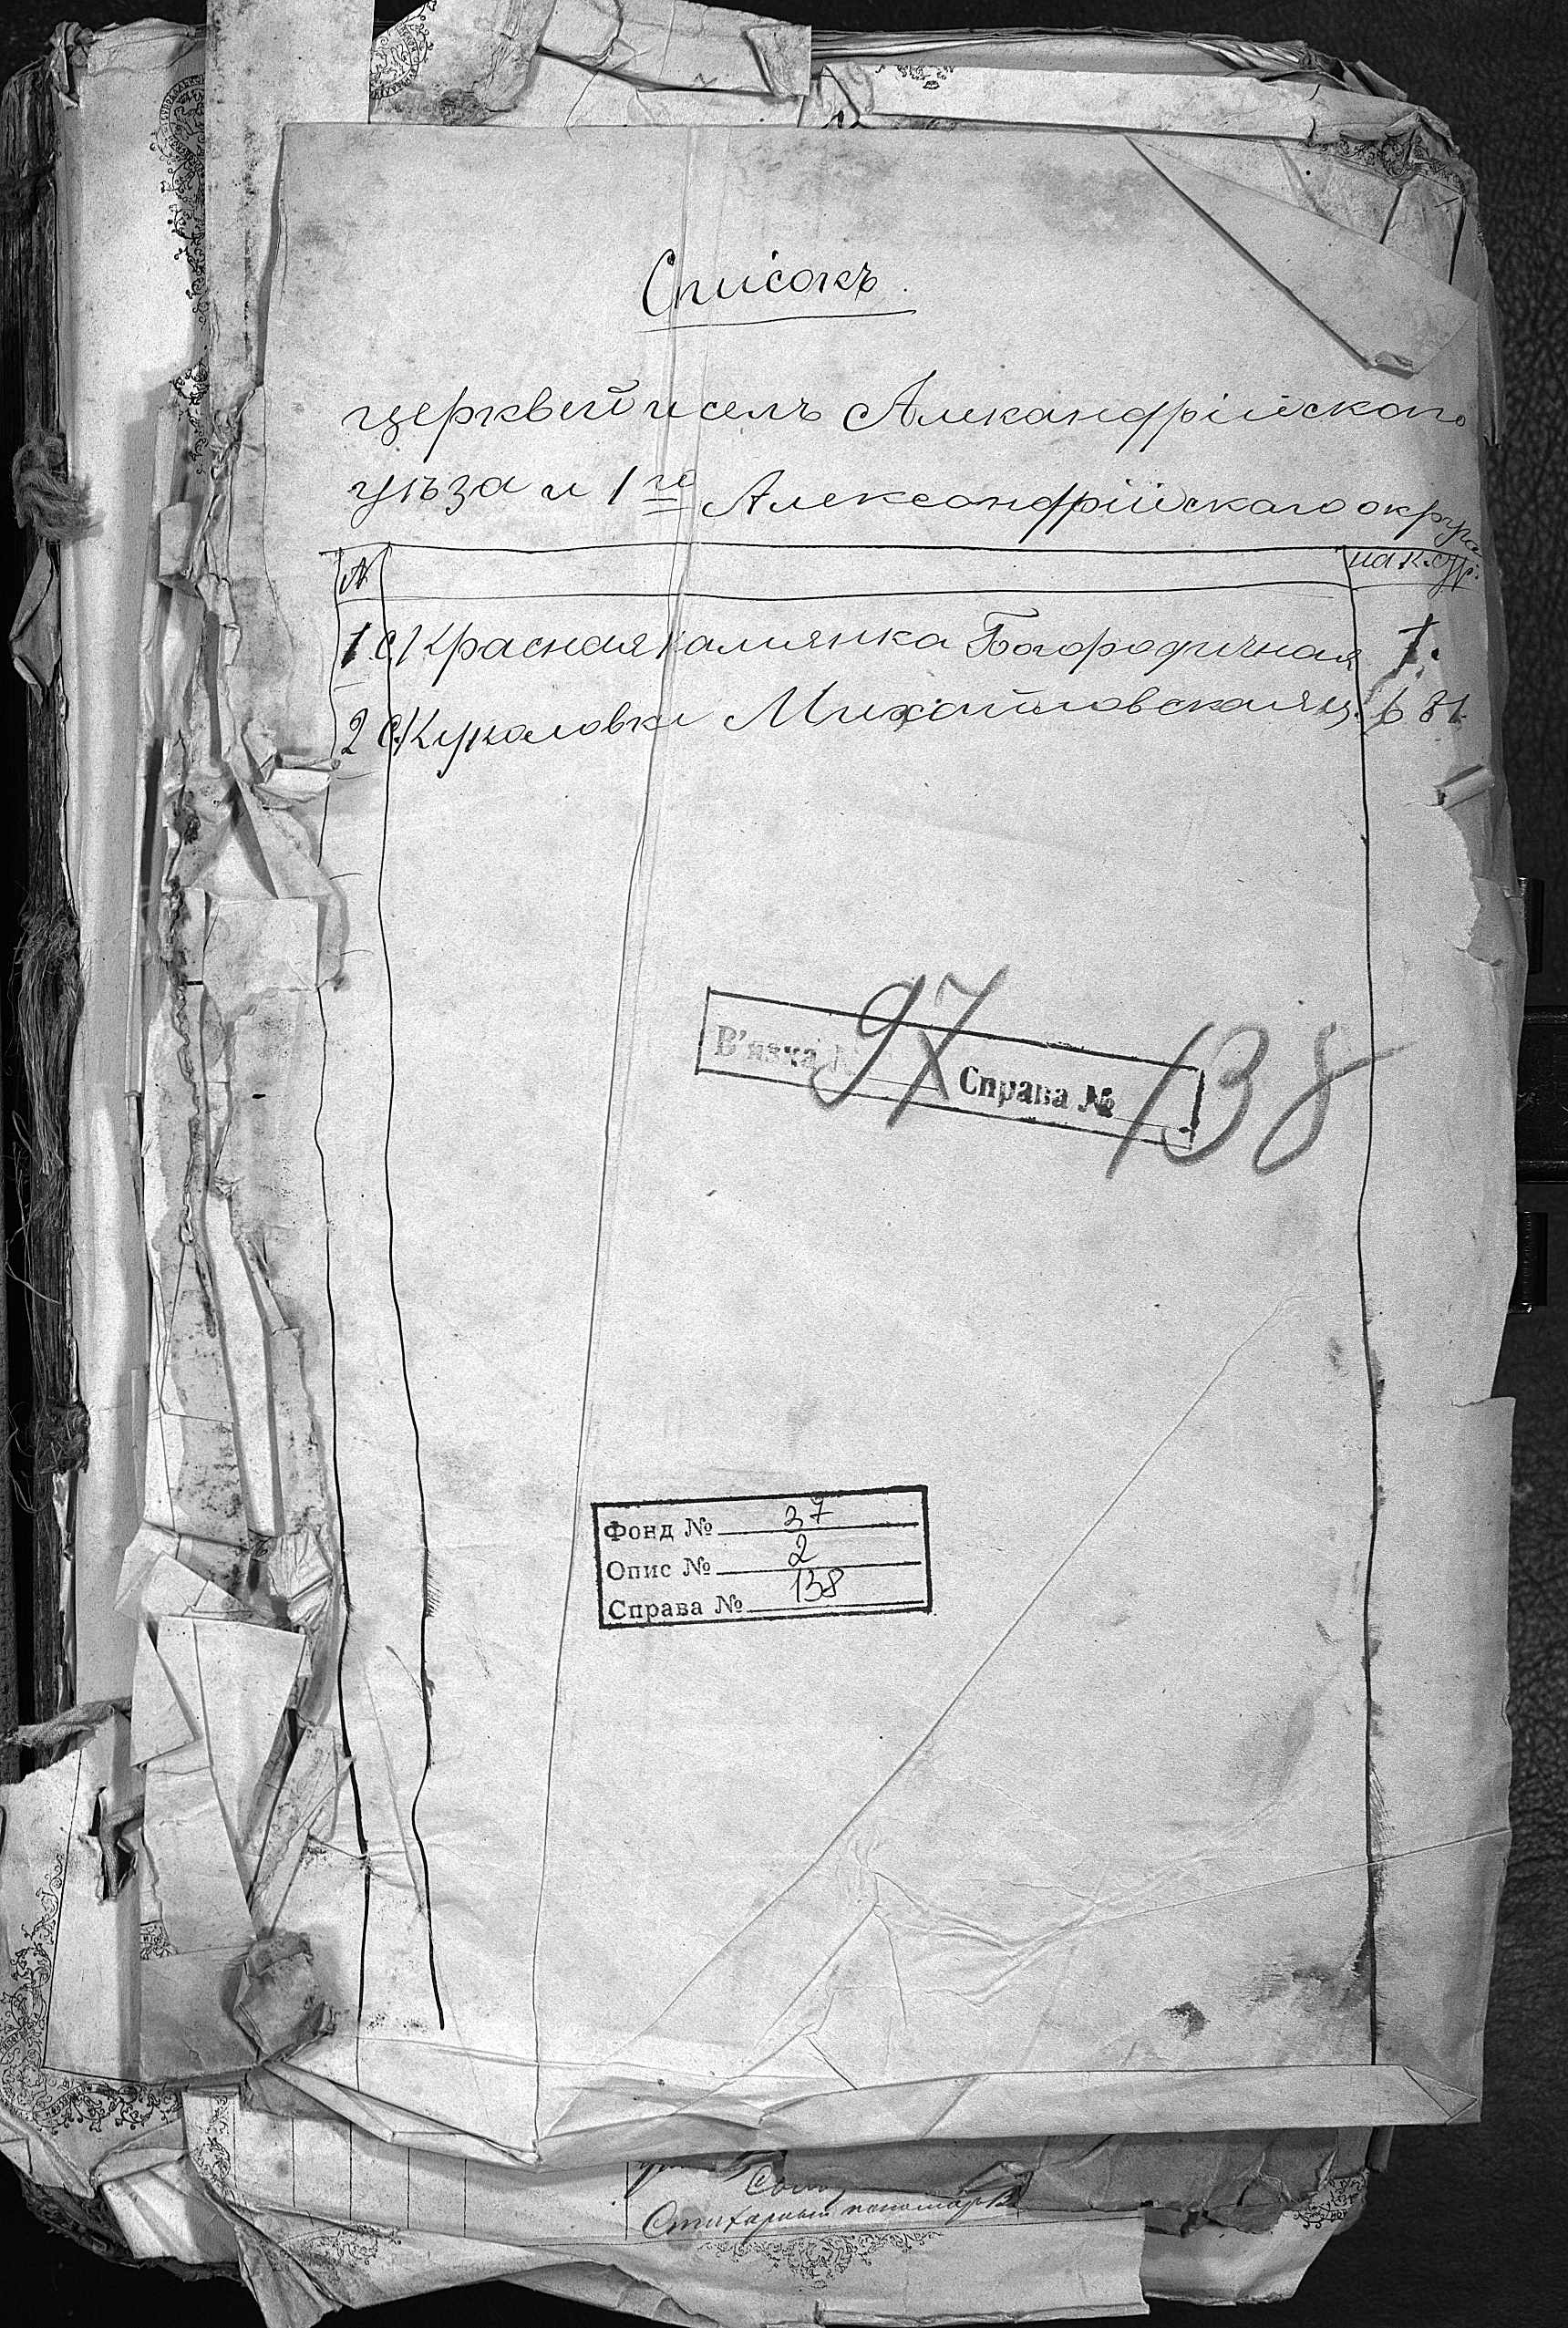 Списокъ.
церквей и селъ Алекандрійскаго
уѣза и 1го Александрійскаго округа
№ на к. стр.
1 с. Красная каминка Богородичная 1.
2 с. Куколовка Михайловская ц. 681
В'язка № 97 Справа № 138
Фонд № 37
Опис № 2
Справа № 138
Стихарный пономарь